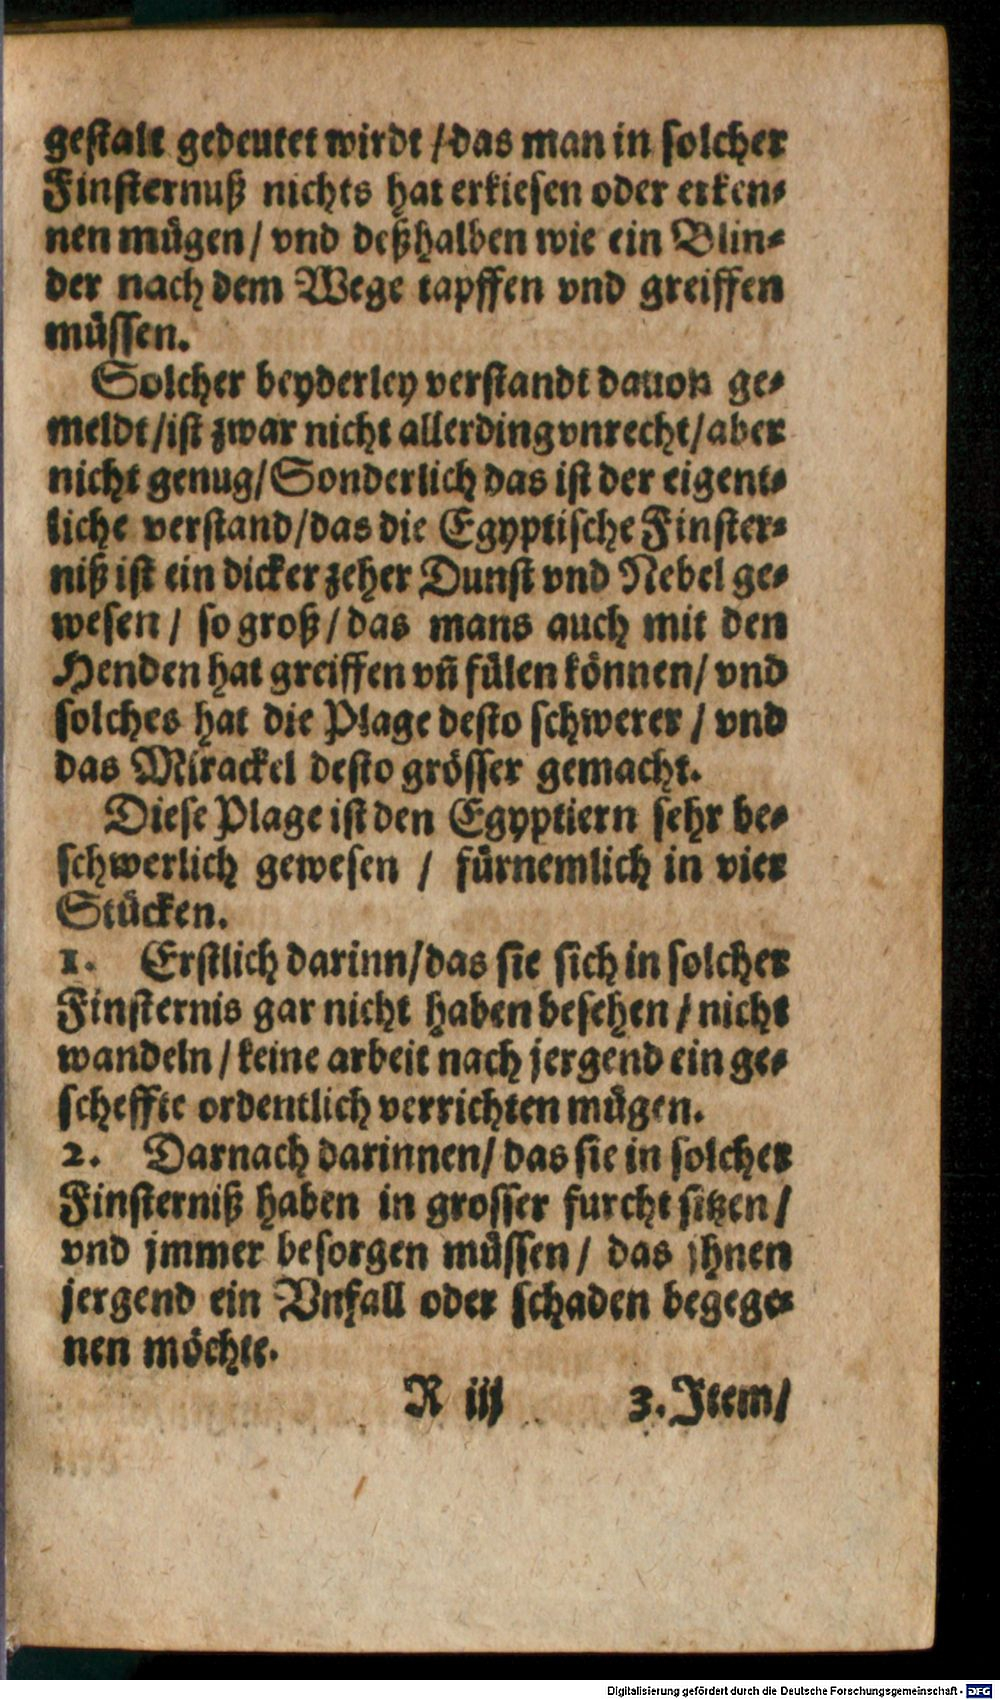 gestalt gedeutet wirdt / das man in solcher
Finsternuß nichts hat erkiesen oder erken⸗
nen mügen / vnd deßhalben wie ein Blin⸗
der nach dem Wege tapffen vnd greiffen
müssen.
Solcher beyderley verstandt dauon ge⸗
meldt / ist zwar nicht allerding vnrecht / aber
nicht genug / Sonderlich das ist der eigent⸗
liche verstand / das die Egyptische Finster⸗
niß ist ein dicker zeher Dunst vnd Nebel ge⸗
wesen / so groß / das mans auch mit den
Henden hat greiffen vñ fülen können / vnd
solches hat die Plage desto schwerer / vnd
das Mirackel desto grösser gemacht.
Diese Plage ist den Egyptiern sehr be⸗
schwerlich gewesen / fürnemlich in vier
Stücken.
1. Erstlich darinn / das sie sich in solcher
Finsternis gar nicht haben besehen / nicht
wandeln / keine arbeit nach jergend ein ge⸗
scheffte ordentlich verrichten mügen.
2. Darnach darinnen / das sie in solcher
Finsterniß haben in grosser furcht sitzen /
vnd jmmer besorgen müssen / das jhnen
jergend ein Vnfall oder schaden begege⸗
nen möchte.
R iij 3. Item /
Digitalisierung gefördert durch die Deutsche Forschungsgemeinschaft - DFG